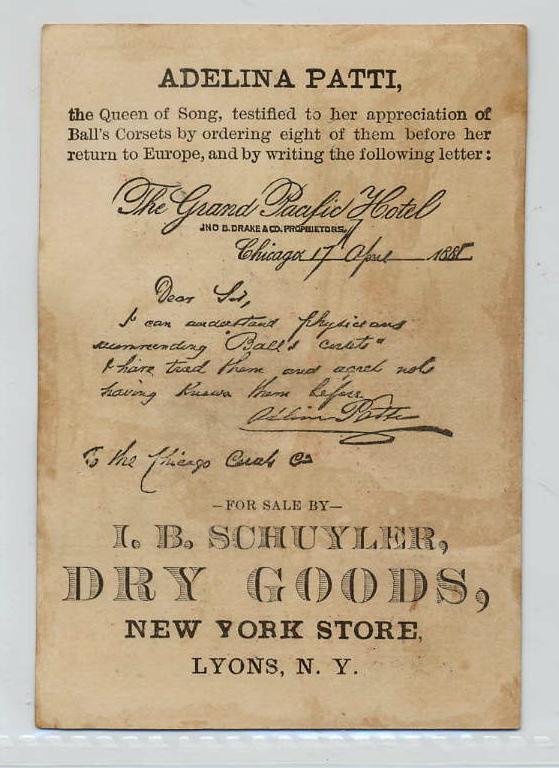 ADELINA PATTI,
the Queen of Song, testified to her appreciation of
Ball's Corsets by ordering eight of them before her
return to Europe, and by writing the following letter:
The Grand Pacific Hotel
JNO B. DRAKE & CO. PROPRIETORS.
Chicago 17 April 188
Dear Sir,
I can understand physicians
recommending "Ball's corsets"
I have tried them and regret not
having known them before.
Adelina Patti
To the Chicago Corset Co
—FOR SALE BY—
I. B. SCHUYLER,
DRY GOODS,
NEW YORK STORE,
LYONS, N. Y.